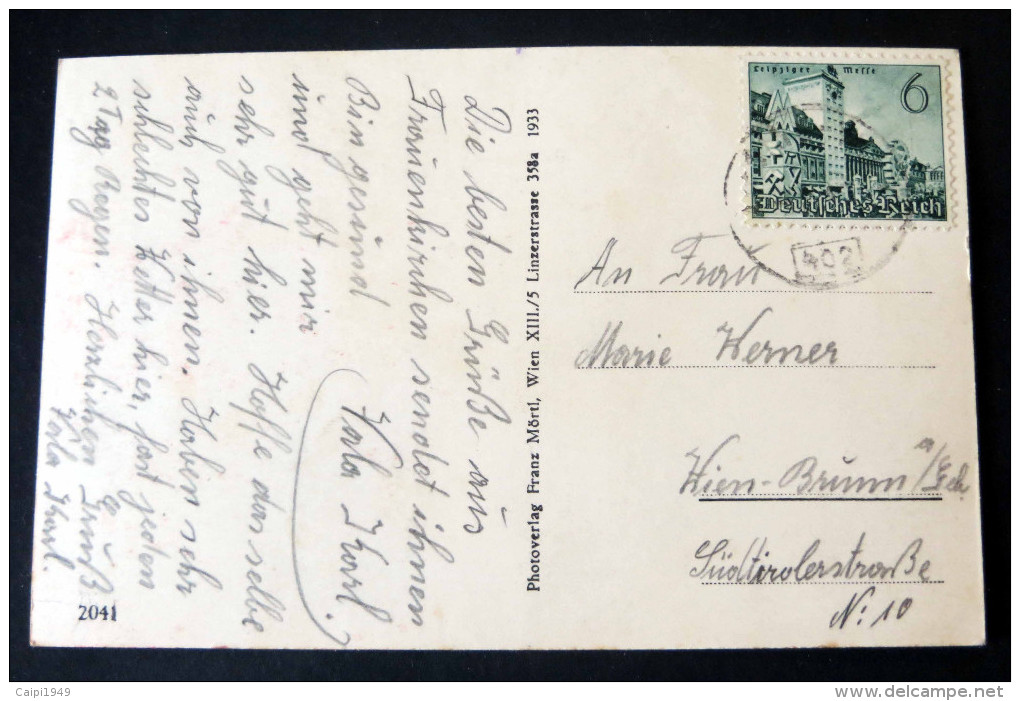 Die besten Grüße aus
Frauenkirchen sendet ihnen
Bin gesund
und geht mir
sehr gut hier. Hoffe das selbe
auch von ihnen. Haben sehr
schlechtes Wetter hier, fast jeden
2 Tag Regen. Herzlichen Gruß
Karl.
2041
Photoverlag Franz Mörtl, Wien XIII./5 Linzerstrasse 358a 1933
Leipziger Messe
6
Deutsches Reich
402
An Frau
Marie Werner
Wien-Brunn a/Geb
Südtirolerstraße
N: 10
Caipi1949
www.delcampe.net